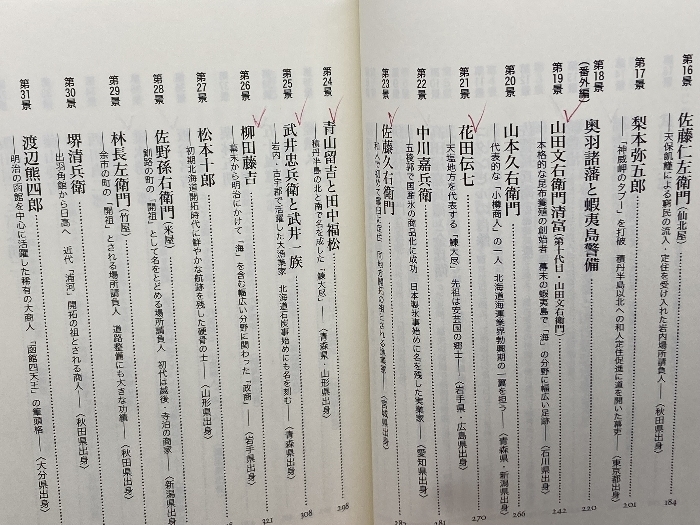 第16景
佐藤仁左衛門(仙北屋)
―天保飢饉による窮民の流入・定住を受け入れた岩内場所請負人―〈秋田県出身〉
184
第17景
梨本弥五郎
―「神威岬のタブー」を打破 積丹半島以北への和人定住促進に道を開いた幕吏―〈東京都出身〉
201
第18景(番外編)
奥羽諸藩と蝦夷島警備
220
第19景
山田文右衛門清富(第十代目・山田文右衛門)
―本格的な昆布養殖の創始者 幕末の蝦夷島で「海」の分野に幅広い足跡―〈石川県出身〉
242
第20景
山本久右衛門
―代表的な「小樽商人」の一人 北海道海運業界勃興期の一翼を担う―〈青森県・新潟県出身〉
266
第21景
花田伝七
―天塩地方を代表する「鰊大尽」 先祖は安芸国の郷士―〈岩手県・広島県出身〉
270
第22景
中川嘉兵衛
―五稜郭で国産氷の商品化に成功 日本製氷事始めに名を残した実業家―〈愛知県出身〉
281
第23景
佐藤久右衛門
〈宮城県出身〉
第24景
青山留吉と田中福松
―積丹半島の北と南で名を成した「鰊大尽」―〈青森県・山形県出身〉
298
第25景
武井忠兵衛と武井一族
―岩内・古宇郡で活躍した大漁業家 北海道石炭事始めにも名を刻む―〈青森県出身〉
308
第26景
柳田藤吉
―幕末から明治にかけて「海」を含む幅広い分野に関わった「政商」―〈岩手県出身〉
321
第27景
松本十郎
―初期北海道開拓時代に鮮やかな航跡を残した硬骨の士―〈山形県出身〉
第28景
佐野孫右衛門(米屋)
―釧路の町の「開祖」として名をとどめる場所請負人 初代は越後・寺泊の商家―〈新潟県出身〉
第29景
林長左衛門(竹屋)
―余市の町の「開祖」とされる場所請負人 道路整備にも大きな功績―〈秋田県出身〉
第30景
堺清兵衛
―出羽角館から日高へ 近代「浦河」開拓の祖とされる商人―〈秋田県出身〉
第31景
渡辺熊四郎
―明治の函館を中心に活躍した稀有の大商人 「函館四天王」の筆頭格―〈大分県出身〉